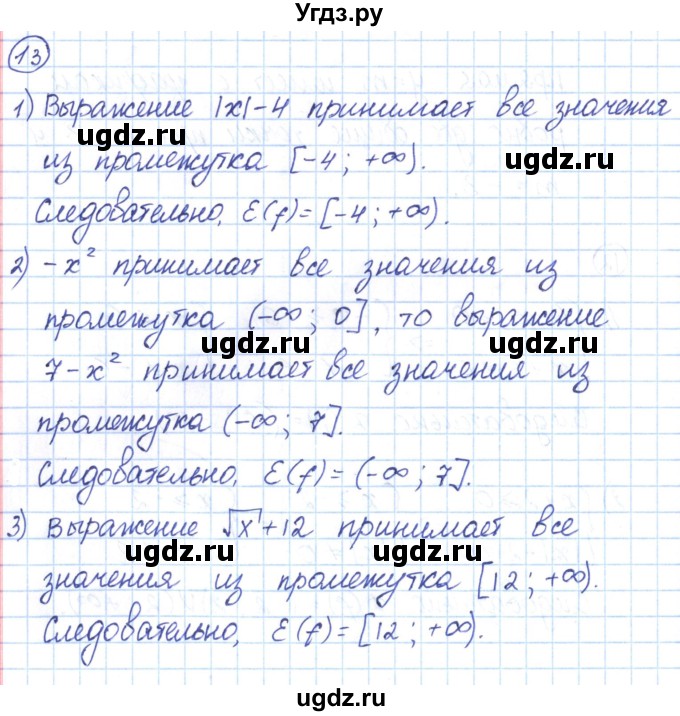 Угдз.ру
13
1) Выражение |x|-4 принимает все значения
ugdz.ru ugdz.ru
из промежутка [-4; +∞).
Следовательно, E(f)=[-4; +∞).
ugdz.ru
2) -x² принимает все значения из
промежутка (-∞; 0], то выражение
ugdz.ru ugdz.ru
7-x² принимает все значения из
ugdz.ru
промежутка (-∞; 7].
ugdz.ru ugdz.ru
Следовательно, E(f)=(-∞; 7].
3) Выражение √x+12 принимает все
ugdz.ru ugdz.ru
значения из промежутка [12; +∞).
Следовательно, E(f)=[12; +∞).
ugdz.ru
ugdz.ru